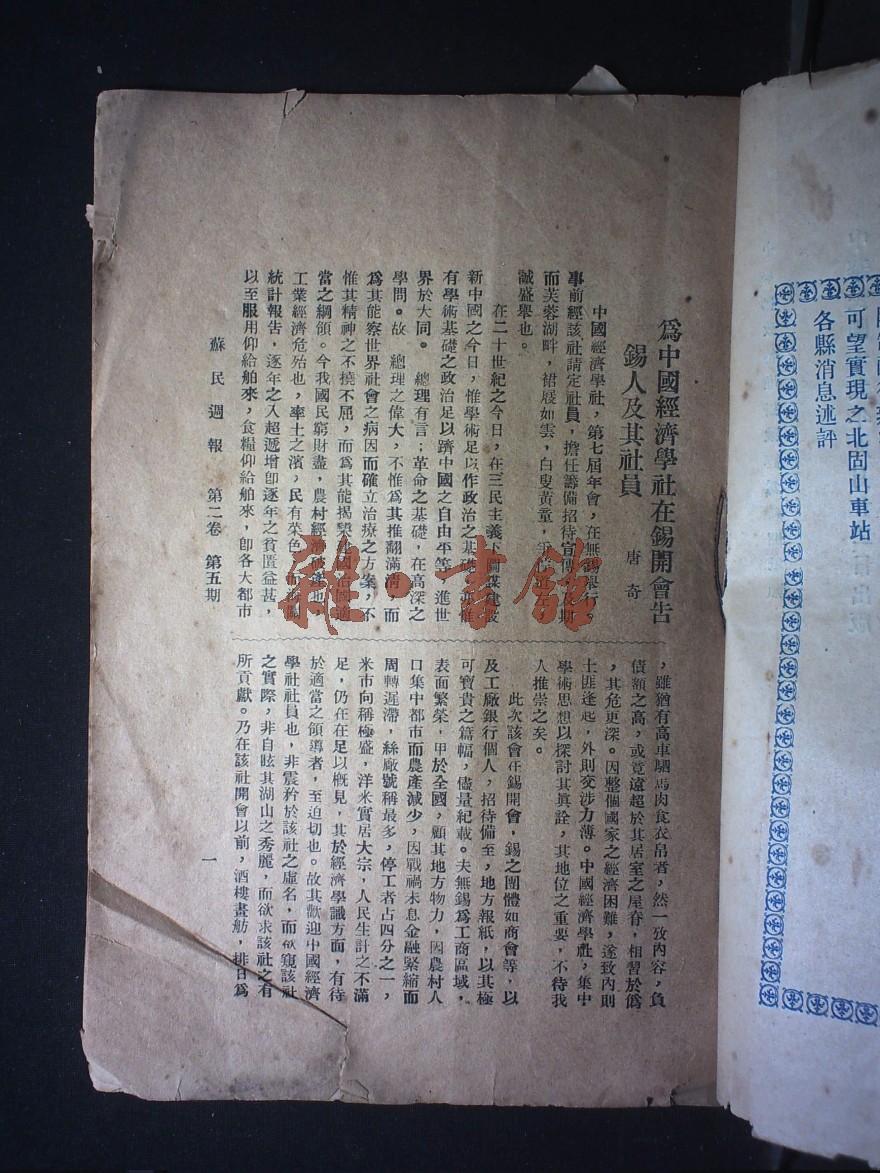 爲中國經濟學社在錫開會告
錫人及其社員
唐奇
中國經濟學社,第七屆年會,在無錫舉行。
事前經該社請定社員,擔任籌備招待宣傳
而芙蓉湖畔,裙屐如雲,白叟黃童,
誠盛舉也。
在二十世紀之今日,在三民主義下圖謀建設
新中國之今日,惟學術足以作政治之基礎,亦惟
有學術基礎之政治足以躋中國之自由平等,進世
界於大同。 總理有言;革命之基礎,在高深之
學問。故 總理之偉大,不惟爲其推翻滿淸,而
爲其能察世界社會之病因而確立治療之方案,不
惟其精神之不撓不屈,而爲其能揭櫫建國治國適
當之綱領。今我國民窮財盡,農村經濟破產也,
工業經濟危殆也,率土之濱,民有菜色,
統計報告,逐年之入超遞增卽逐年之貧匱益甚,
以至服用仰給舶來,食糧仰給舶來,卽各大都市
,雖猶有高車駟馬肉食衣帛者,然一致內容,負
債額之高,或竟遠超於其居室之屋脊,相習於僞
,其危更深。因整個國家之經濟困難,遂致內則
士匪蓬起,外則交涉力薄。中國經濟學社,集中
學術思想以探討其眞詮,其地位之重要,不待我
人推崇之矣。
此次該會在錫開會,錫之團體如商會等,以
及工廠銀行個人,招待備至,地方報紙,以其極
可寶貴之篇幅,儘量紀載。夫無錫爲工商區域,
表面繁榮,甲於全國,顧其地方物力,因農村人
口集中都市而農產減少,因戰禍未息金融緊縮而
周轉遲滯,絲廠號稱最多,停工者占四分之一,
米市向稱極盛,洋米實居大宗,人民生計之不滿
足,仍在在足以槪見,其於經濟學識方面,有待
於適當之領導者,至迫切也。故其歡迎中國經濟
學社社員也,非震矜於該社之虛名,而欲窺該社
之實際,非自眩其湖山之秀麗,而欲求該社之有
所貢獻。乃在該社開會以前,酒樓畫舫,排日爲
蘇民週報 第二卷 第五期
一
可望實現之北固山車站
各縣消息述評
雜·書館